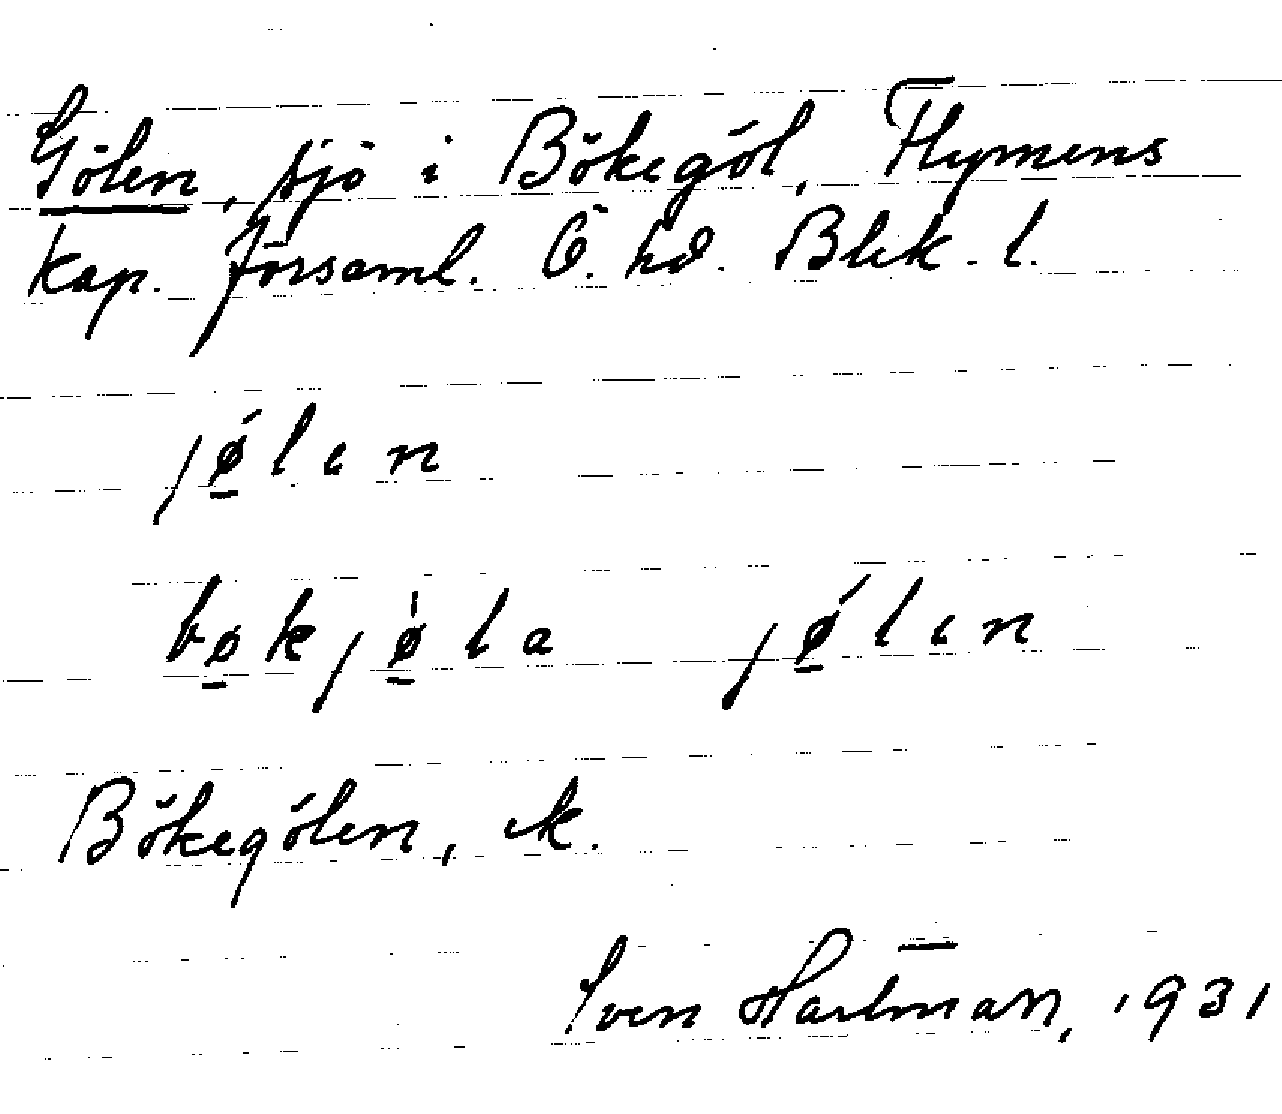 Gölen, sjö i Bökegöl, Flymens
kap. församl. Ö. hd. Blek. l.
jǿ̲lın
bø̲kjø̲̍la jǿ̲lın
Bökegölen, ek.
Sven Hartman, 1931